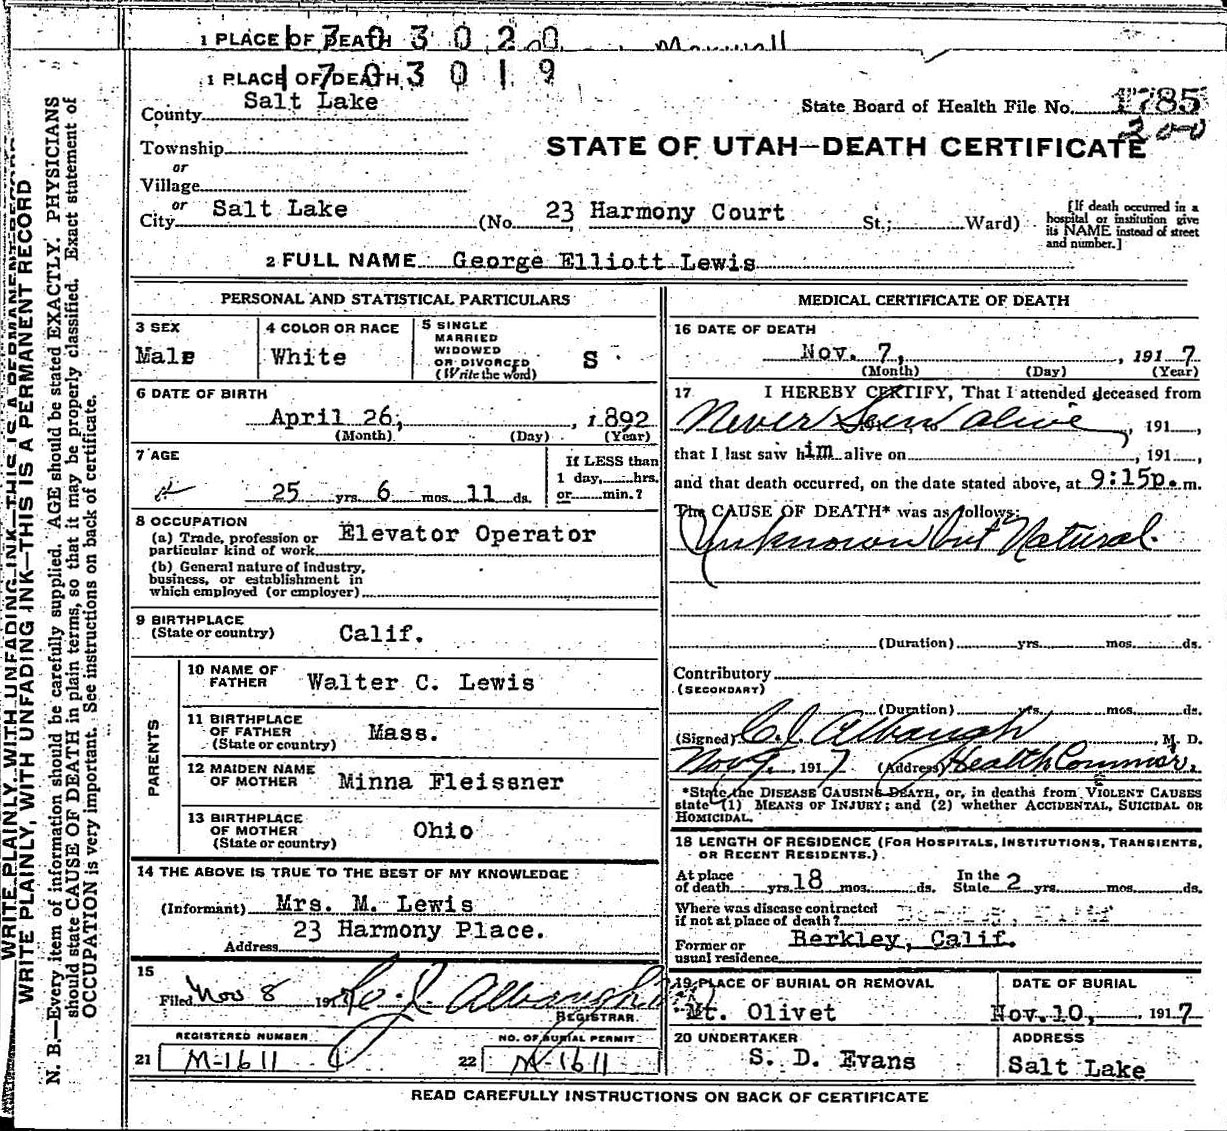 1 PLACE OF DEATH 3020
1 PLACE OF DEATH 1703019
County Salt Lake
State Board of Health File No. 1785
200
Township
or
Village
STATE OF UTAH—DEATH CERTIFICATE
or
City Salt Lake (No. 23 Harmony Court St.; Ward)
[If death occurred in a
hospital or institution give
its NAME instead of street
and number.]
2 FULL NAME George Elliott Lewis
PERSONAL AND STATISTICAL PARTICULARS
3 SEX
Male
4 COLOR OR RACE
White
5 SINGLE
MARRIED
WIDOWED
OR DIVORCED
(Write the word)
S
6 DATE OF BIRTH
April 26, 1892
(Month) (Day) (Year)
7 AGE
25 yrs. 6 mos. 11 ds.
If LESS than
1 day, hrs.
or min.?
8 OCCUPATION
(a) Trade, profession or
particular kind of work Elevator Operator
(b) General nature of industry,
business, or establishment in
which employed (or employer)
9 BIRTHPLACE
(State or country) Calif.
PARENTS
10 NAME OF
FATHER Walter C. Lewis
11 BIRTHPLACE
OF FATHER
(State or country) Mass.
12 MAIDEN NAME
OF MOTHER Minna Fleissner
13 BIRTHPLACE
OF MOTHER
(State or country) Ohio
14 THE ABOVE IS TRUE TO THE BEST OF MY KNOWLEDGE
(Informant) Mrs. M. Lewis
Address 23 Harmony Place.
15
Filed Nov 8 191 Albaugh
REGISTRAR.
REGISTERED NUMBER
21 M-1611
NO. OF BURIAL PERMIT
22 M-1611
MEDICAL CERTIFICATE OF DEATH
16 DATE OF DEATH
Nov. 7, , 1917
(Month) (Day) (Year)
17 I HEREBY CERTIFY, That I attended deceased from
Never Seen alive , 191 ,
that I last saw him alive on , 191 ,
and that death occurred, on the date stated above, at 9:15p.m.
The CAUSE OF DEATH* was as follows:
Unknown but Natural.
(Duration) yrs. mos. ds.
Contributory
(SECONDARY)
(Duration) yrs. mos. ds.
(Signed) C. J. Albaugh , M. D.
Nov 9, 1917 (Address) Health Commsr.
*State the DISEASE CAUSING DEATH, or, in deaths from VIOLENT CAUSES
state (1) MEANS OF INJURY; and (2) whether ACCIDENTAL, SUICIDAL OR
HOMICIDAL.
18 LENGTH OF RESIDENCE (FOR HOSPITALS, INSTITUTIONS, TRANSIENTS,
OR RECENT RESIDENTS.)
At place
of death yrs. 18 mos. ds.
In the
State 2 yrs. mos. ds.
Where was disease contracted
if not at place of death?
Former or
usual residence Berkley, Calif.
19 PLACE OF BURIAL OR REMOVAL
Mt. Olivet
DATE OF BURIAL
Nov. 10, 1917
20 UNDERTAKER
S. D. Evans
ADDRESS
Salt Lake
READ CAREFULLY INSTRUCTIONS ON BACK OF CERTIFICATE
WRITE PLAINLY, WITH UNFADING INK—THIS IS A PERMANENT RECORD
WRITE PLAINLY, WITH UNFADING INK—THIS IS A PERMANENT RECORD
N. B.—Every item of information should be carefully supplied. AGE should be stated EXACTLY. PHYSICIANS
should state CAUSE OF DEATH in plain terms, so that it may be properly classified. Exact statement of
OCCUPATION is very important. See instructions on back of certificate.